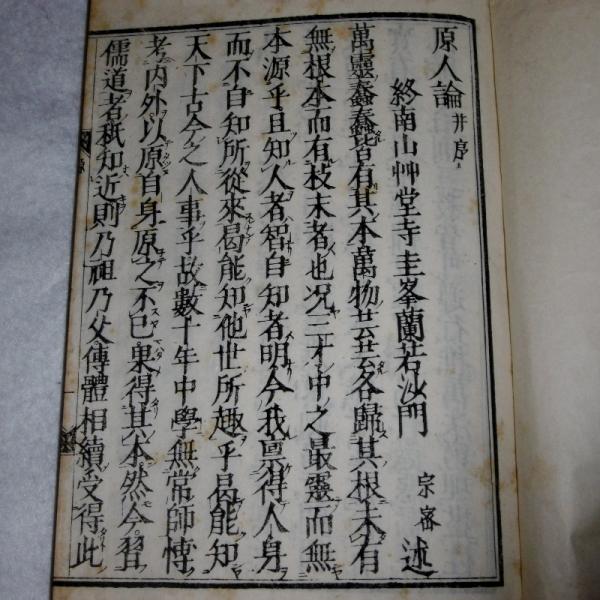 原人論并序
終南山艸堂寺圭峯蘭若沙門宗密述
萬靈蠢蠢皆有其本萬物芸芸各歸其根未有
無根本而有枝末者也況三才中之最靈而無
本源乎且知人者智自知者明今我稟得人身
而不自知所從來曷能知他世所趣乎曷能知
天下古今之人事乎故數十年中學無常師博
考内外以原自身原之不已果得其本然今習
儒道者秖知近則乃祖乃父傳體相續受得此